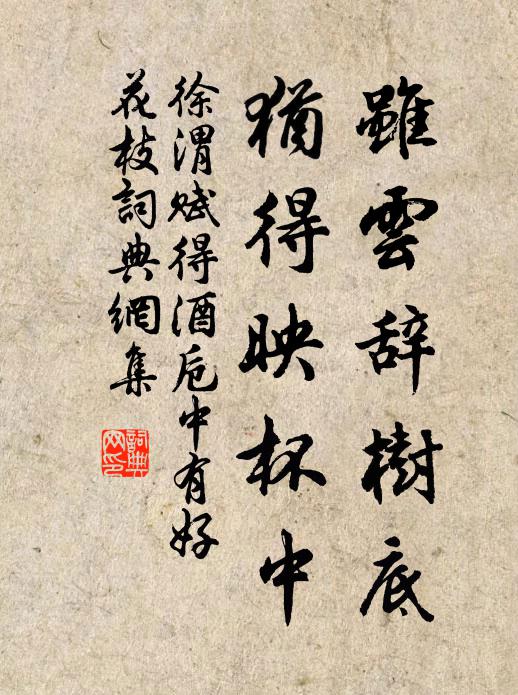 雖雲辞樹底
猶得映杯中
徐渭賦得酒卮中有好
花枝詞典網集
詞典
网印